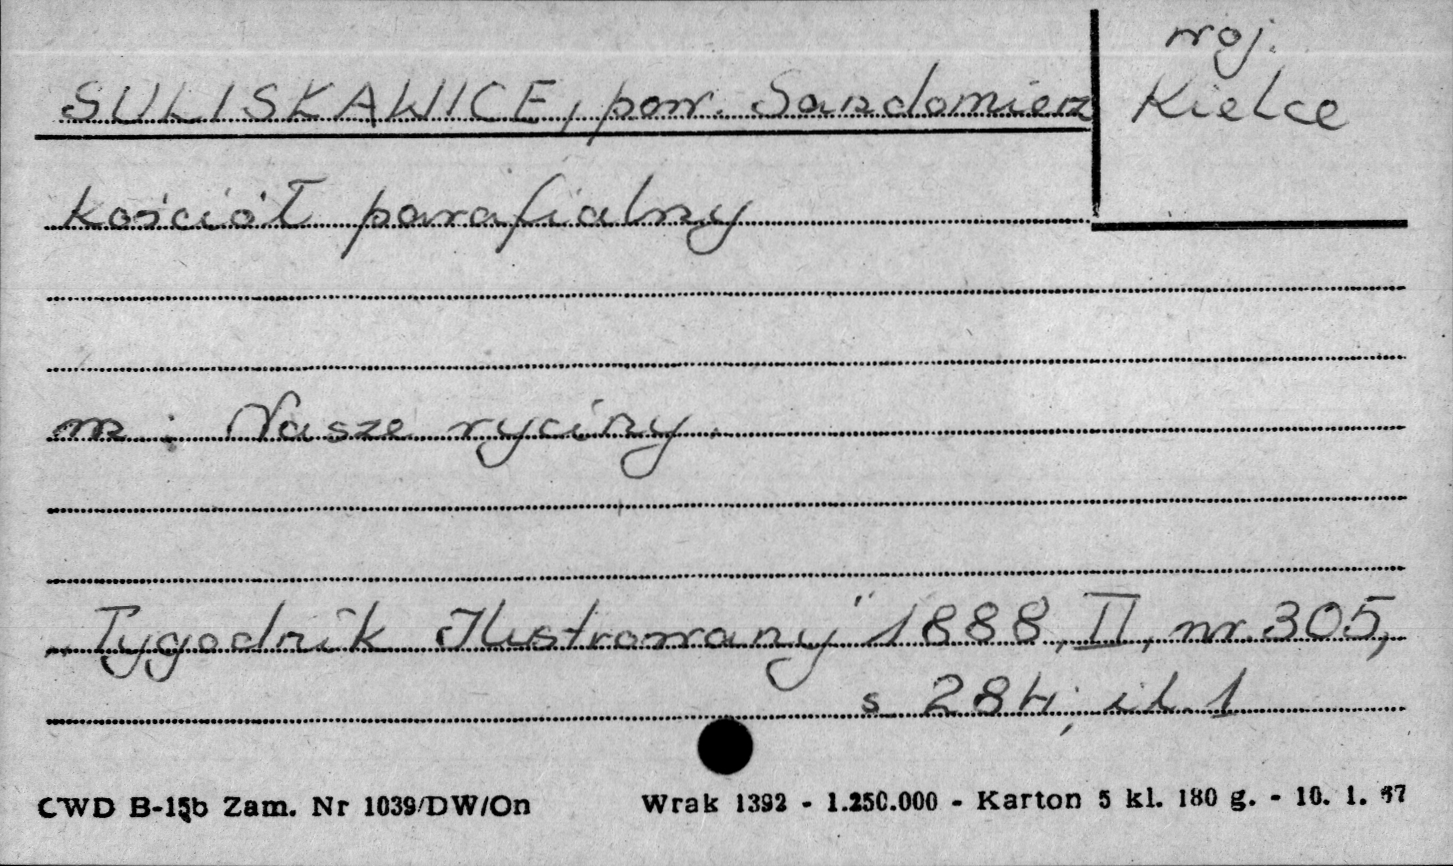 woj.
Kielce
SULISKAWICE, pow. Sandomierz
kościół parafialny
w: Nasze ryciny.
„Tygodnik Ilustrowany" 1888, II, nr. 305,
s 284; il. 1
CWD B-15b Zam. Nr 1039/DW/On
Wrak 1392 - 1.250.000 - Karton 5 kl. 180 g. - 10. 1. 67